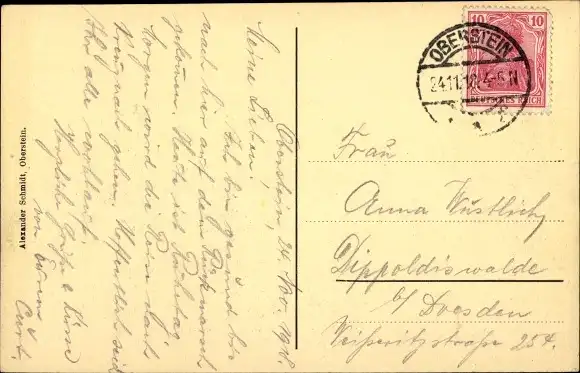 Oberstein, 24. Nov. 1918.
Meine Lieben!
Ich bin gesund bis
nach hier auf dem Rückmarsch
gekommen. Heute ist Ruhetag
Morgen wird die Reise nach
Kreuznach gehen. Hoffentlich seid
Ihr alle wohlauf.
Herzliche Grüße & Küsse
von Euerm
Curt.
Alexander Schmidt, Oberstein.
10 10
DEUTSCHES REICH
OBERSTEIN
24.11.18. 4-5 N
Frau
Anna Wüstlich
Dippoldiswalde
b/ Dresden
Weißeritzstraße 254.